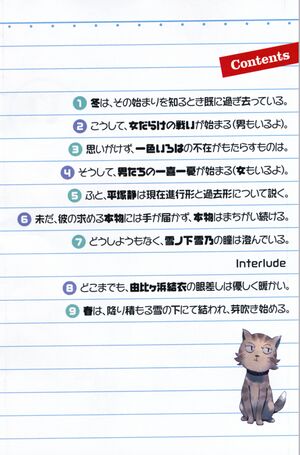 Contents
1 冬は、その始まりを知るとき既に過ぎ去っている。
2 こうして、女だらけの戦いが始まる(男もいるよ)。
3 思いがけず、一色いろはの不在がもたらすものは。
4 そうして、男たちの一喜一憂が始まる(女もいるよ)。
5 ふと、平塚静は現在進行形と過去形について説く。
6 未だ、彼の求める本物には手が届かず、本物はまちがい続ける。
7 どうしようもなく、雪ノ下雪乃の瞳は澄んでいる。
Interlude
8 どこまでも、由比ヶ浜結衣の眼差しは優しく暖かい。
9 春は、降り積もる雪の下にて結われ、芽吹き始める。